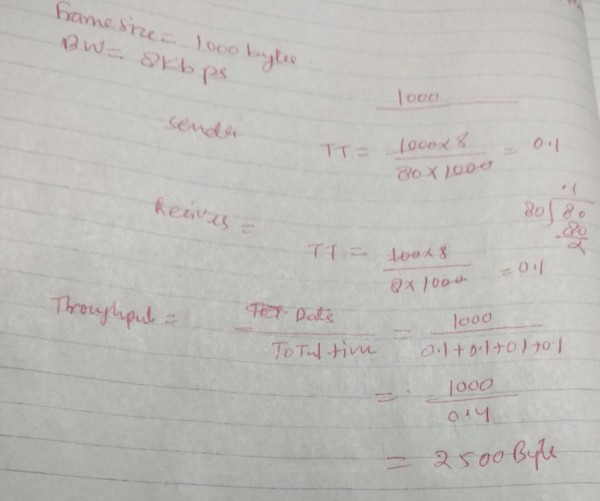 Frame size = 1000 bytes
BW = 8Kbps
1000
Sender
TT = 1000x8 / 80 x 1000 = 0.1
Reciver =
.1
80 80
-80
TT = 100x8 / 8x1000 = 0.1
Throughput = = Data / Total time = 1000 / 0.1+0.1+0.1+0.1
= 1000 / 0.4
= 2500 Byte